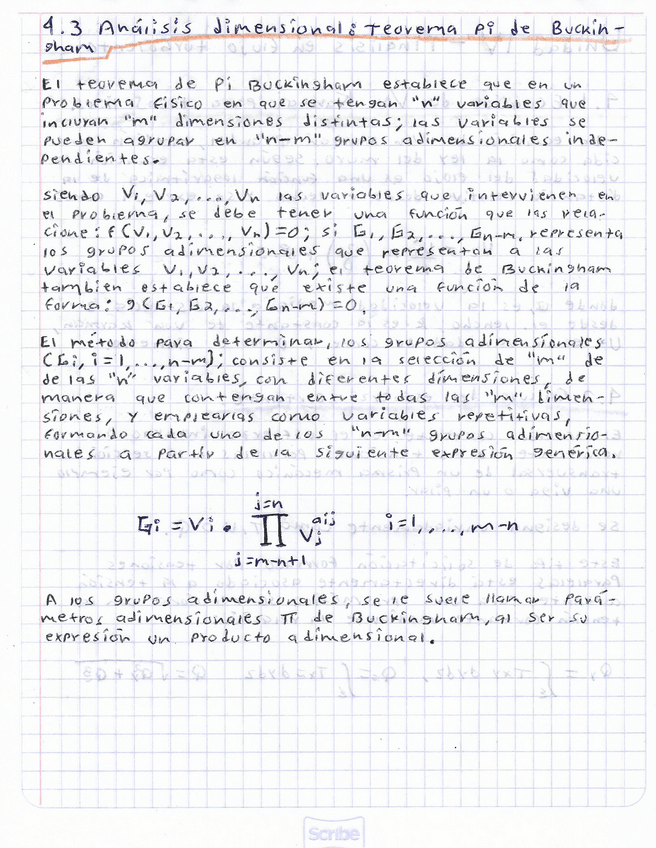 4.3 Análisis dimensional: teorema pi de Buckin-
gham
El teorema de Pi Buckingham establece que en un
problema físico en que se tengan "n" variables que
incluran "m" dimensiones distintas; las variables se
pueden agrupar en "n-m" grupos adimensionales inde-
pendientes.
Siendo V1, V2, ..., Vn las variables que intervienen en
el problema, se debe tener una función que las rela-
cione: f(V1, V2, ..., Vn)=0; si G1, G2, ..., Gn-m, representa
los grupos adimensionales que representan a las
variables V1, V2, ..., Vn; el teorema de Buckingham
tambien establece que existe una función de la
forma: g(G1, G2, ..., Gn-m)=0.
El método para determinar, los grupos adimensionales
(Gi, i=1, ..., n-m); consiste en la selección de "m" de
de las "n" variables, con diferentes dimensiones, de
manera que contengan entre todas las "m" dimen-
siones, y emplearlas como variables repetitivas,
formando cada uno de los "n-m" grupos adimensio-
nales a partir de la siguiente expresión genérica.
j=n
Gi = Vi • ∏ Vj^aij i=1, ..., m-n
j=m-n+1
A los grupos adimensionales, se le suele llamar pará-
metros adimensionales π de Buckingham, al ser su
expresión un producto adimensional.
Scribe